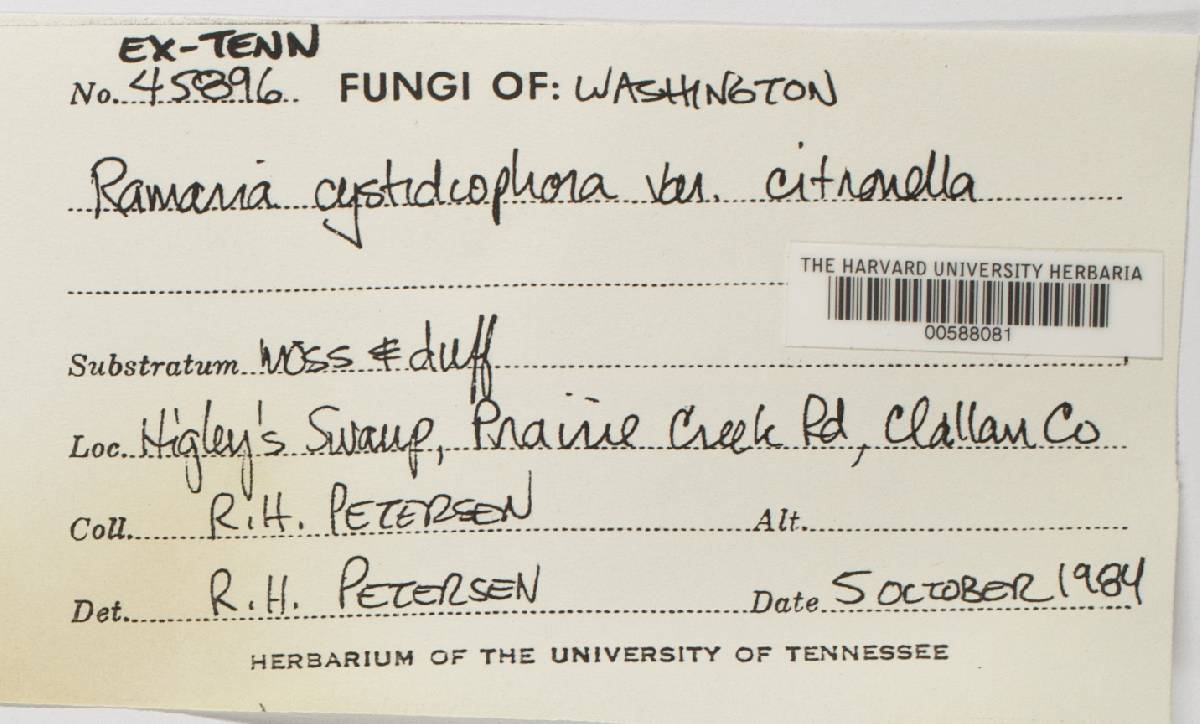 EX-TENN
No. 45896 FUNGI OF: WASHINGTON
Ramaria cystidiophora var. citronella
THE HARVARD UNIVERSITY HERBARIA
00588081
Substratum moss & duff
Loc. Higley's Swamp, Prairie Creek Rd, Clallam Co
Coll. R.H. PETERSEN Alt.
Det. R.H. PETERSEN Date 5 OCTOBER 1984
HERBARIUM OF THE UNIVERSITY OF TENNESSEE